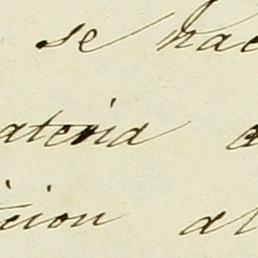 se hac
ateria
icion al